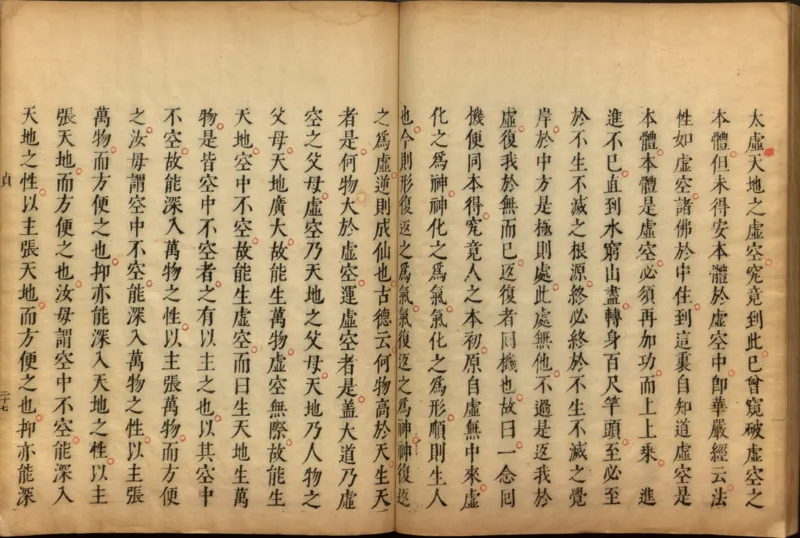 太虛天地之虛空究竟到此已曾窺破虛空之
本體但未得安本體於虛空中卽華嚴經云法
性如虛空諸佛於中住到這裏自知道虛空是
本體本體是虛空必須再加功而上上乘進
進不已直到水窮山盡轉身百尺竿頭至必至
於不生不滅之根源終必終於不生不滅之覺
岸於中方是極則處此處無他不過是返我於
虛復我於無而已返復者回機也故曰一念回
機便同本得究竟人之本初原自虛無中來虛
化之爲神神化之爲氣氣化之爲形順則生人
也今則形復返之爲氣氣復返之爲神神復返
之爲虛逆則成仙也古德云何物高於天生天
者是何物大於虛空運虛空者是蓋大道乃虛
空之父母虛空乃天地之父母天地乃人物之
父母天地廣大故能生萬物虛空無際故能生
天地空中不空故能生虛空而曰生天地生萬
物是皆空中不空者之有以主之也以其空中
不空故能深入萬物之性以主張萬物而方便
之汝毋謂空中不空能深入萬物之性以主張
萬物而方便之也抑亦能深入天地之性以主
張天地而方便之也汝毋謂空中不空能深入
天地之性以主張天地而方便之也抑亦能深
貞
二十七